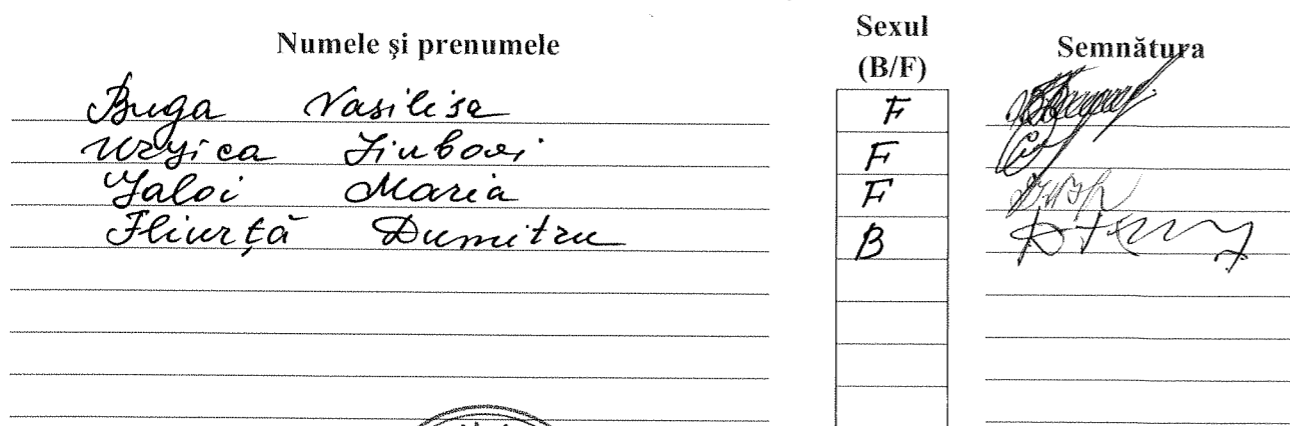 Numele şi prenumele Sexul (B/F) Semnătura
Buga Vasilisa F
Urzica Liubovi F
Jaloi Maria F
Fliurţă Dumitru B